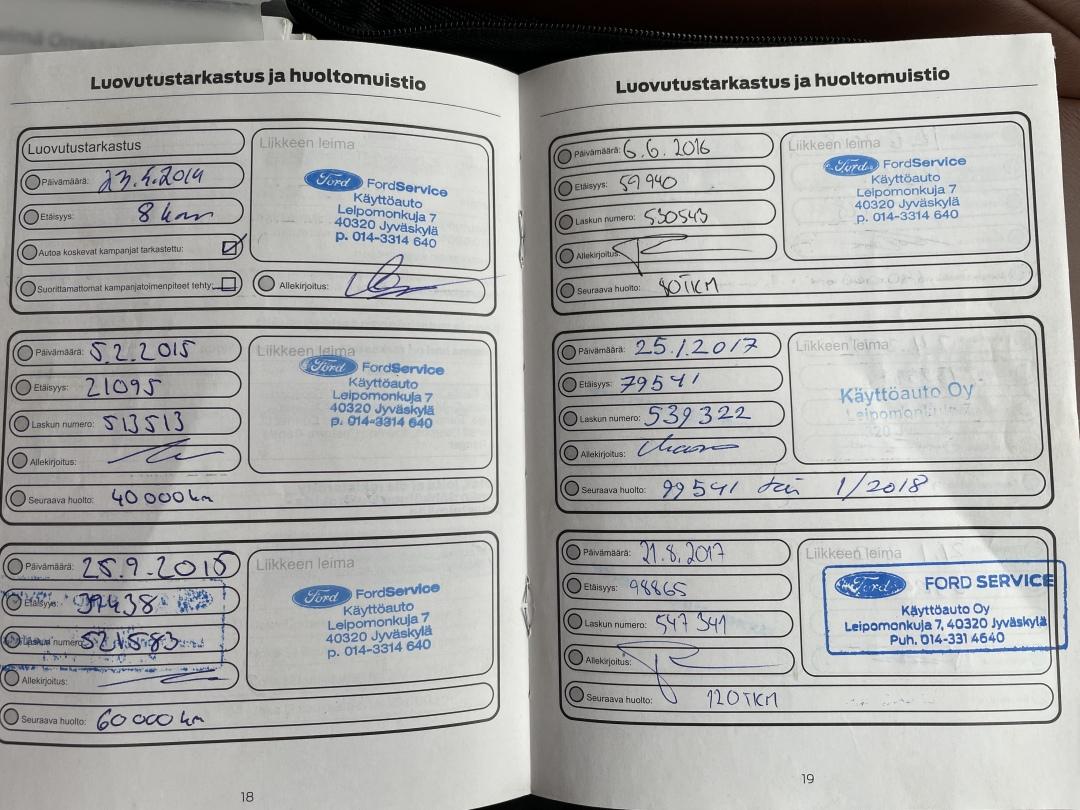 Luovutustarkastus ja huoltomuistio
Luovutustarkastus
Päivämäärä: 23.4.2014
Etäisyys: 8 km
Autoa koskevat kampanjat tarkastettu:
Suorittamattomat kampanjatoimenpiteet tehty:
Liikkeen leima
Ford FordService
Käyttöauto
Leipomonkuja 7
40320 Jyväskylä
p. 014-3314 640
Allekirjoitus:
Päivämäärä: 5.2.2015
Etäisyys: 21095
Laskun numero: 513513
Allekirjoitus:
Seuraava huolto: 40 000 km
Liikkeen leima
Ford FordService
Käyttöauto
Leipomonkuja 7
40320 Jyväskylä
p. 014-3314 640
Päivämäärä: 25.9.2015
Etäisyys: 39438
Laskun numero: 521583
Allekirjoitus:
Seuraava huolto: 60 000 km
Liikkeen leima
Ford FordService
Käyttöauto
Leipomonkuja 7
40320 Jyväskylä
p. 014-3314 640
18
Luovutustarkastus ja huoltomuistio
Päivämäärä: 6.6.2016
Etäisyys: 59940
Laskun numero: 530543
Allekirjoitus:
Seuraava huolto: 80TKM
Liikkeen leima
Ford FordService
Käyttöauto
Leipomonkuja 7
40320 Jyväskylä
p. 014-3314 640
Päivämäärä: 25.1.2017
Etäisyys: 79541
Laskun numero: 539322
Allekirjoitus:
Seuraava huolto: 99541 tai 1/2018
Liikkeen leima
Käyttöauto Oy
Leipomonkuja 7
Päivämäärä: 21.8.2017
Etäisyys: 98865
Laskun numero: 547341
Allekirjoitus:
Seuraava huolto: 120TKM
Liikkeen leima
Ford FORD SERVICE
Käyttöauto Oy
Leipomonkuja 7, 40320 Jyväskylä
Puh. 014-331 4640
19